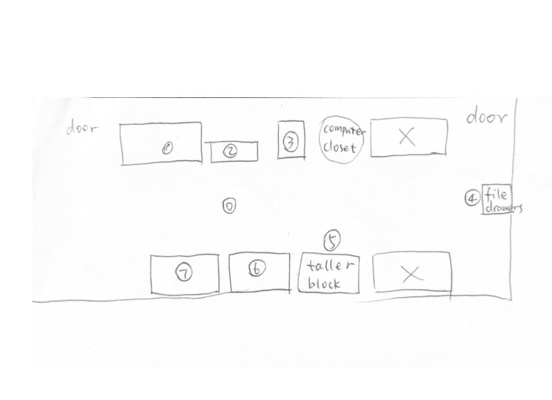 door
door
①
②
③
computer
closet
X
⓪
④
file
drawers
⑤
⑦
⑥
taller
block
X